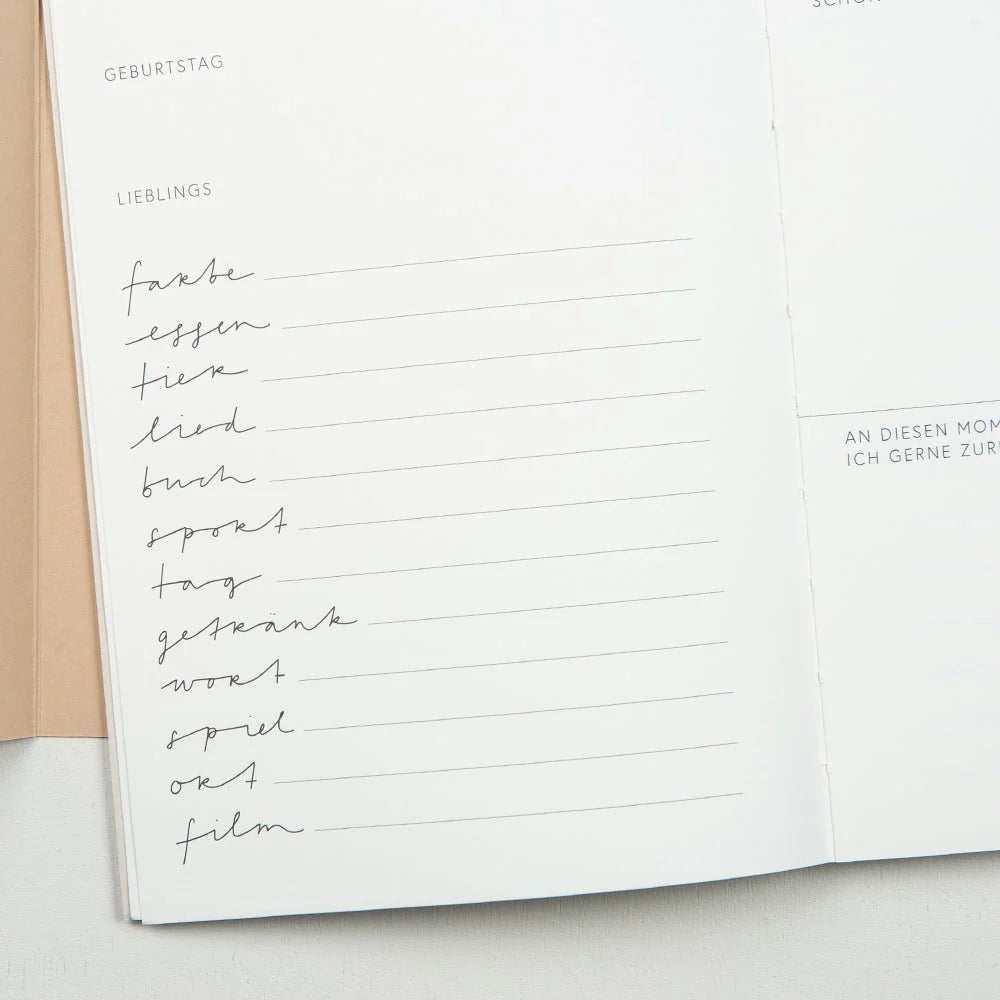 GEBURTSTAG
LIEBLINGS
farbe
essen
tier
lied
buch
sport
tag
getränk
wort
spiel
ort
film
AN DIESEN MOM
ICH GERNE ZUR